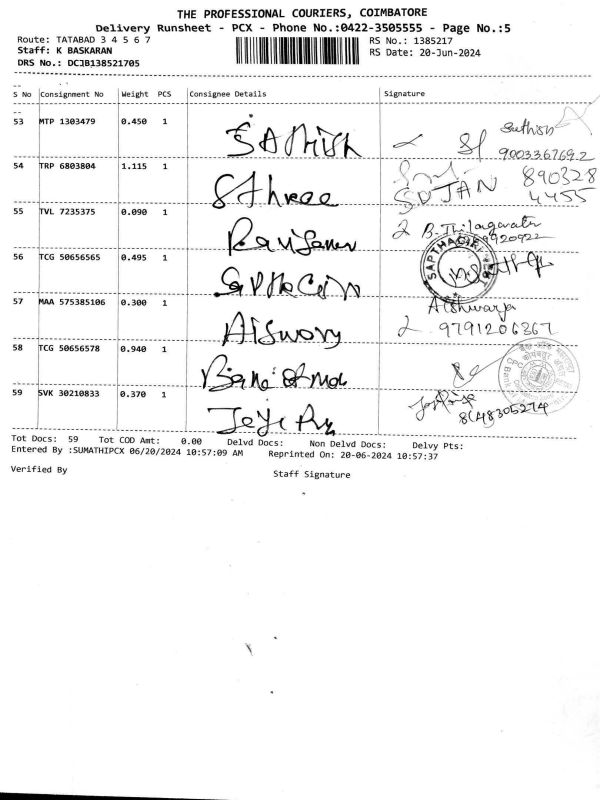 THE PROFESSIONAL COURIERS, COIMBATORE
Delivery Runsheet - PCX - Phone No.:0422-3505555 - Page No.:5
Route: TATABAD 3 4 5 6 7
RS No.: 1385217
Staff: K BASKARAN
RS Date: 20-Jun-2024
DRS No.: DCJB138521705
S No Consignment No Weight PCS Consignee Details Signature
53 MTP 1303479 0.450 1 Sathish Sathish
9003367692
54 TRP 6803804 1.115 1 Sthree SUJAN 890328
4455
55 TVL 7235375 0.090 1 B. Thilagavathi
56 TCG 50656565 0.495 1 SAPTHAGIRI
57 MAA 575385106 0.300 1 Aiswory Aishwarya
9791206367
58 TCG 50656578 0.940 1
59 SVK 30210833 0.370 1
8148305274
Tot Docs: 59 Tot COD Amt: 0.00 Delvd Docs: Non Delvd Docs: Delvy Pts:
Entered By :SUMATHIPCX 06/20/2024 10:57:09 AM Reprinted On: 20-06-2024 10:57:37
Verified By
Staff Signature